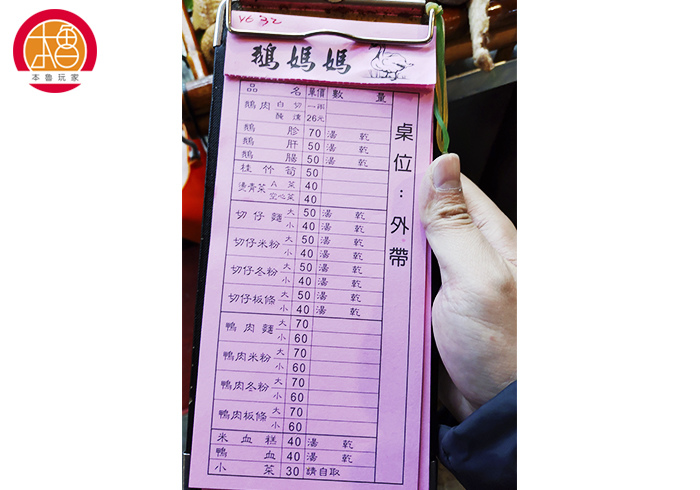 本魯玩家
V6 32
鵝媽媽
桌位：外帶
品名 單價 數量
鵝肉 白切 一兩
醃燻 26元
鵝胗 70 湯 乾
鵝肝 50 湯 乾
鵝腸 50 湯 乾
桂竹筍 50
燙青菜 A菜 40
空心菜 40
切仔麵 大 50 湯 乾
小 40 湯 乾
切仔米粉 大 50 湯 乾
小 40 湯 乾
切仔冬粉 大 50 湯 乾
小 40 湯 乾
切仔板條 大 50 湯 乾
小 40 湯 乾
鴨肉麵 大 70
小 60
鴨肉米粉 大 70
小 60
鴨肉冬粉 大 70
小 60
鴨肉板條 大 70
小 60
米血糕 40 湯 乾
鴨血 40 湯 乾
小菜 30 請自取